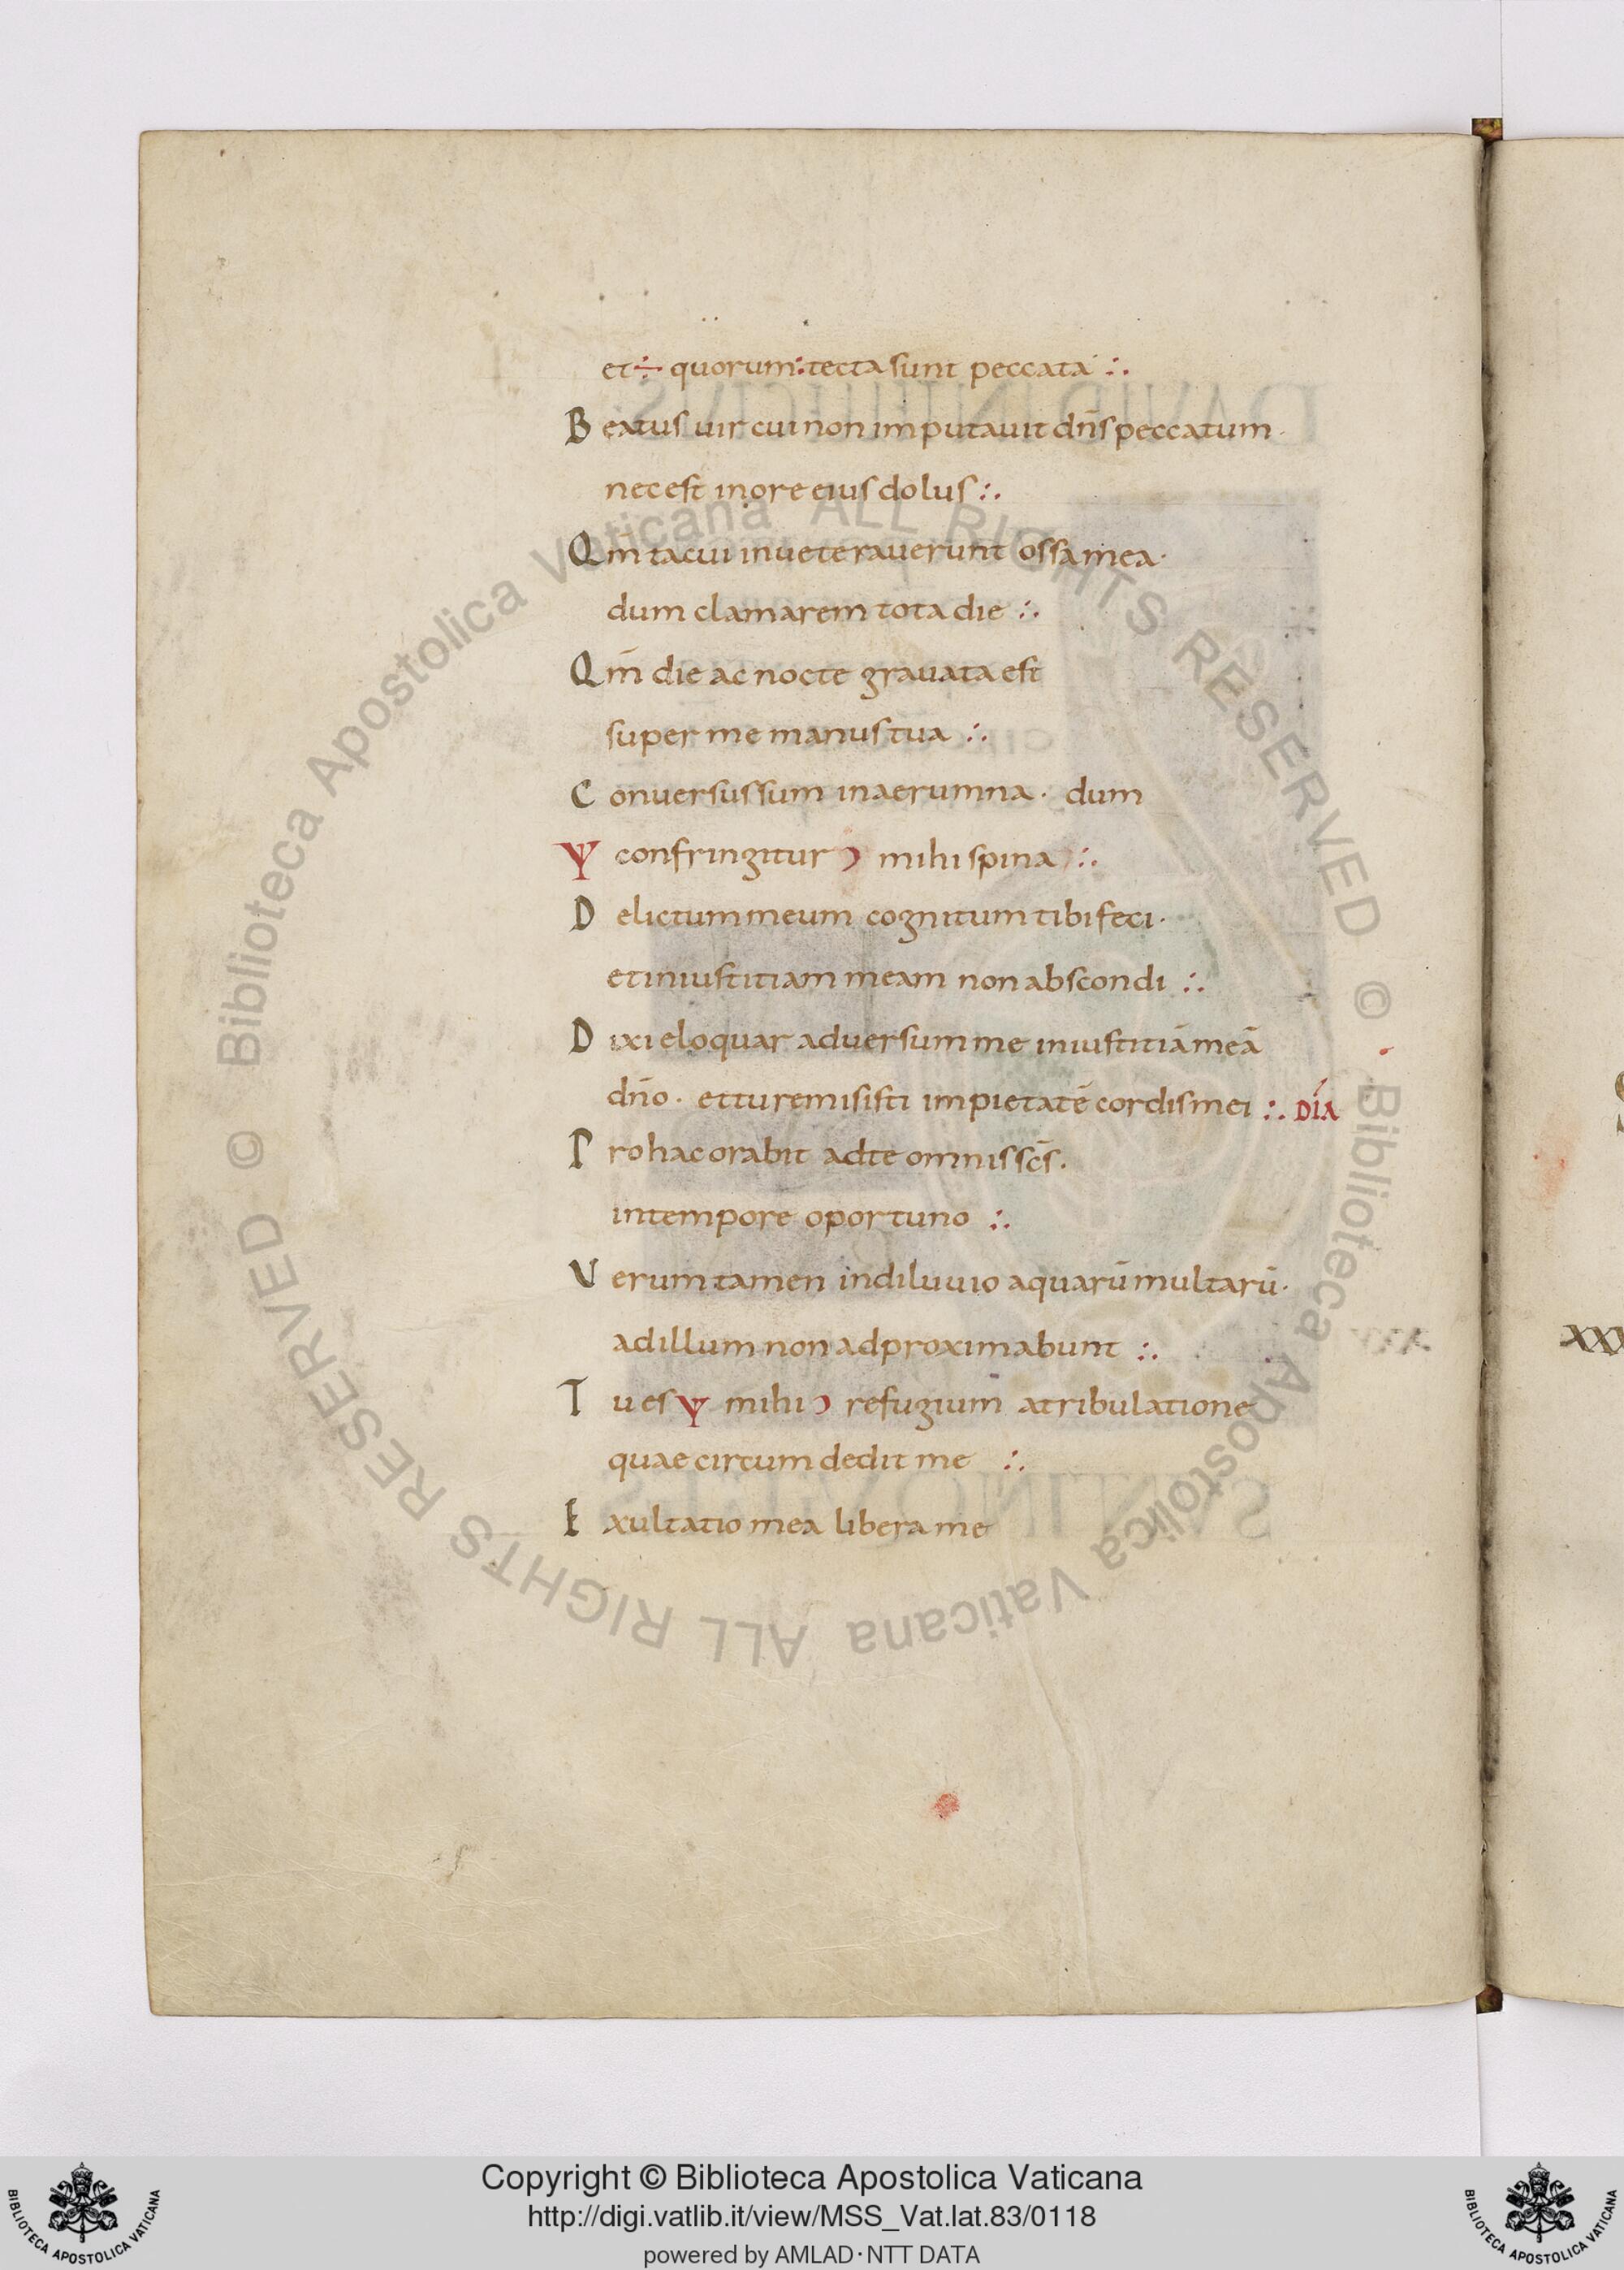 et ÷ quorum : tecta sunt peccata ∴
Beatus uir cui non imputauit dn̄s peccatum ·
nec est in ore eius dolus ∴
Qm̄ tacui inueterauerunt ossa mea ·
dum clamarem tota die ∴
Qm̄ die ac nocte grauata est
super me manus tua ∴
Conuersus sum in aerumna · dum
Ꮙ confringitur ͻ mihi spina ∴
Delictum meum cognitum tibi feci ·
et iniustitiam meam non abscondi ∴
Dixi eloquar aduersum me iniustitiā meā
dn̄o · et tu remisisti impietatē cordis mei ∴ DIA
Pro hac orabit ad te omnis sc̄s ·
in tempore oportuno ∴
Uerum tamen in diluuio aquarū multarū ·
ad illum non adproximabunt ∴
Tu es Ꮙ mihi ͻ refugium a tribulatione
quae circum dedit me ∴
Exultatio mea libera me
XXX
© Biblioteca Apostolica Vaticana ALL RIGHTS RESERVED © Biblioteca Apostolica Vaticana ALL RIGHTS RESERVED
Copyright © Biblioteca Apostolica Vaticana
http://digi.vatlib.it/view/MSS_Vat.lat.83/0118
powered by AMLAD·NTT DATA
BIBLIOTECA APOSTOLICA VATICANA
BIBLIOTECA APOSTOLICA VATICANA